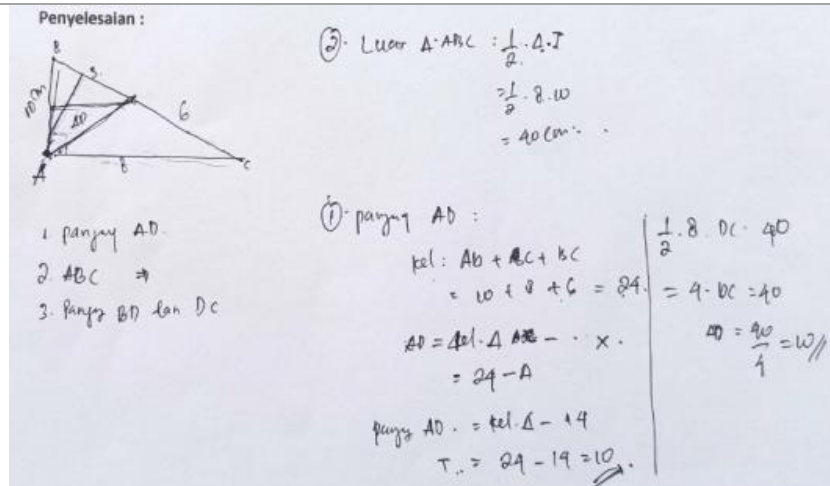 Penyelesaian :
B
5
10 cm
AD
6
A
8
C
1. panjang AD.
2. ABC ⇒
3. Panjang BD dan DC
②. Luas Δ ABC : 1/2 . A.T
= 1/2 . 8.10
= 40 cm.
①. panjang AD :
kel : Ab + AC + BC
= 10 + 8 + 6 = 24.
AD = kel. Δ - . x .
= 24 - A
panjang AD . = kel. Δ - 14
= 24 - 14 = 10
1/2 . 8 . DC . 40
= 4 . DC = 40
AD = 40/4 = 10 //